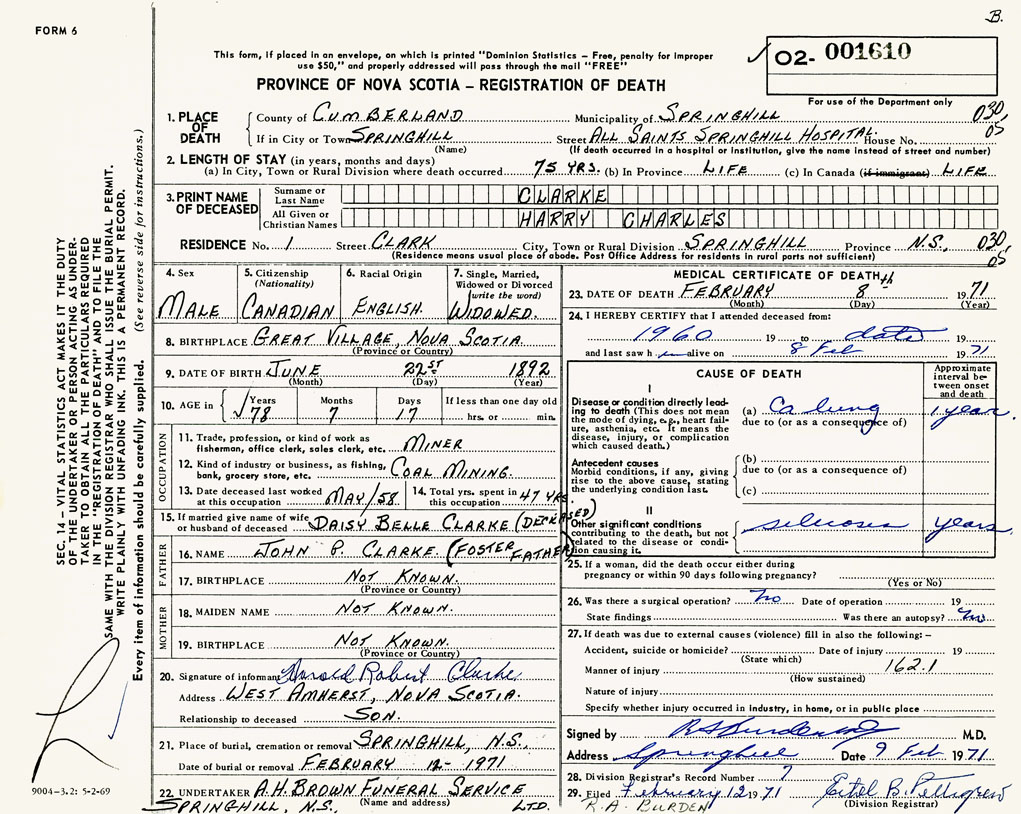 B.
FORM 6
This form, if placed in an envelope, on which is printed "Dominion Statistics – Free, penalty for improper
use $50," and properly addressed will pass through the mail "FREE"
02- 001610
PROVINCE OF NOVA SCOTIA – REGISTRATION OF DEATH
For use of the Department only
1. PLACE OF DEATH County of CUMBERLAND Municipality of SPRINGHILL 030,
If in City or Town SPRINGHILL Street ALL SAINTS SPRINGHILL HOSPITAL. House No. 05
(Name) (If death occurred in a hospital or institution, give the name instead of street and number)
2. LENGTH OF STAY (in years, months and days)
(a) In City, Town or Rural Division where death occurred 75 YRS. (b) In Province LIFE (c) In Canada (if immigrant) LIFE
3. PRINT NAME OF DECEASED Surname or Last Name CLARKE
All Given or Christian Names HARRY CHARLES
RESIDENCE No. 1 Street CLARK City, Town or Rural Division SPRINGHILL Province N.S. 030,
(Residence means usual place of abode. Post Office Address for residents in rural parts not sufficient) 05
4. Sex MALE
5. Citizenship (Nationality) CANADIAN
6. Racial Origin ENGLISH.
7. Single, Married, Widowed or Divorced (write the word) WIDOWED.
8. BIRTHPLACE GREAT VILLAGE, NOVA SCOTIA.
(Province or Country)
9. DATE OF BIRTH JUNE 22ST 1892
(Month) (Day) (Year)
10. AGE in Years Months Days If less than one day old
√78 7 17 hrs. or min.
OCCUPATION
11. Trade, profession, or kind of work as
fisherman, office clerk, sales clerk, etc. MINER
12. Kind of industry or business, as fishing,
bank, grocery store, etc. COAL MINING.
13. Date deceased last worked at this occupation MAY/58
14. Total yrs. spent in this occupation 47 YRS.
15. If married give name of wife
or husband of deceased DAISY BELLE CLARKE (DECEASED)
FATHER
16. NAME JOHN P. CLARKE (FOSTER FATHER)
17. BIRTHPLACE NOT KNOWN.
(Province or Country)
MOTHER
18. MAIDEN NAME NOT KNOWN.
19. BIRTHPLACE NOT KNOWN.
(Province or Country)
20. Signature of informant Harold Robert Clarke
Address WEST AMHERST, NOVA SCOTIA.
Relationship to deceased SON.
21. Place of burial, cremation or removal SPRINGHILL, N.S.,
Date of burial or removal FEBRUARY 12- 1971
22. UNDERTAKER A.H. BROWN FUNERAL SERVICE
(Name and address) LTD.
SPRINGHILL, N.S.
MEDICAL CERTIFICATE OF DEATH
23. DATE OF DEATH FEBRUARY 8th 1971
(Month) (Day) (Year)
24. I HEREBY CERTIFY that I attended deceased from:
1960 19 to date 19
and last saw h im alive on 8 Feb 1971
CAUSE OF DEATH
Approximate interval between onset and death
I
Disease or condition directly leading to death (This does not mean the mode of dying, e.g., heart failure, asthenia, etc. It means the disease, injury, or complication which caused death.)
(a) Ca lung 1 year.
due to (or as a consequence of)
Antecedent causes
Morbid conditions, if any, giving rise to the above cause, stating the underlying condition last.
(b)
due to (or as a consequence of)
(c)
II
Other significant conditions contributing to the death, but not related to the disease or condition causing it.
silicosis years
25. If a woman, did the death occur either during
pregnancy or within 90 days following pregnancy?
(Yes or No)
26. Was there a surgical operation? No Date of operation 19
State findings Was there an autopsy? No
27. If death was due to external causes (violence) fill in also the following: –
Accident, suicide or homicide? Date of injury 19
(State which)
Manner of injury 162.1
(How sustained)
Nature of injury
Specify whether injury occurred in industry, in home, or in public place
Signed by M.D.
Address Springhill Date 9 Feb 1971
28. Division Registrar's Record Number 7
29. Filed February 12 1971 Ethel B. Pettigrew
(Division Registrar)
R.A. BURDEN
SEC. 14 – VITAL STATISTICS ACT MAKES IT THE DUTY
OF THE UNDERTAKER OR PERSON ACTING AS UNDERTAKER
TO OBTAIN ALL THE PARTICULARS REQUIRED
IN THE "REGISTRATION OF DEATH" AND TO FILE THE
SAME WITH THE DIVISION REGISTRAR WHO SHALL ISSUE THE BURIAL PERMIT.
WRITE PLAINLY WITH UNFADING INK. THIS IS A PERMANENT RECORD.
Every item of information should be carefully supplied. (See reverse side for instructions.)
9004-3.2: 5-2-69